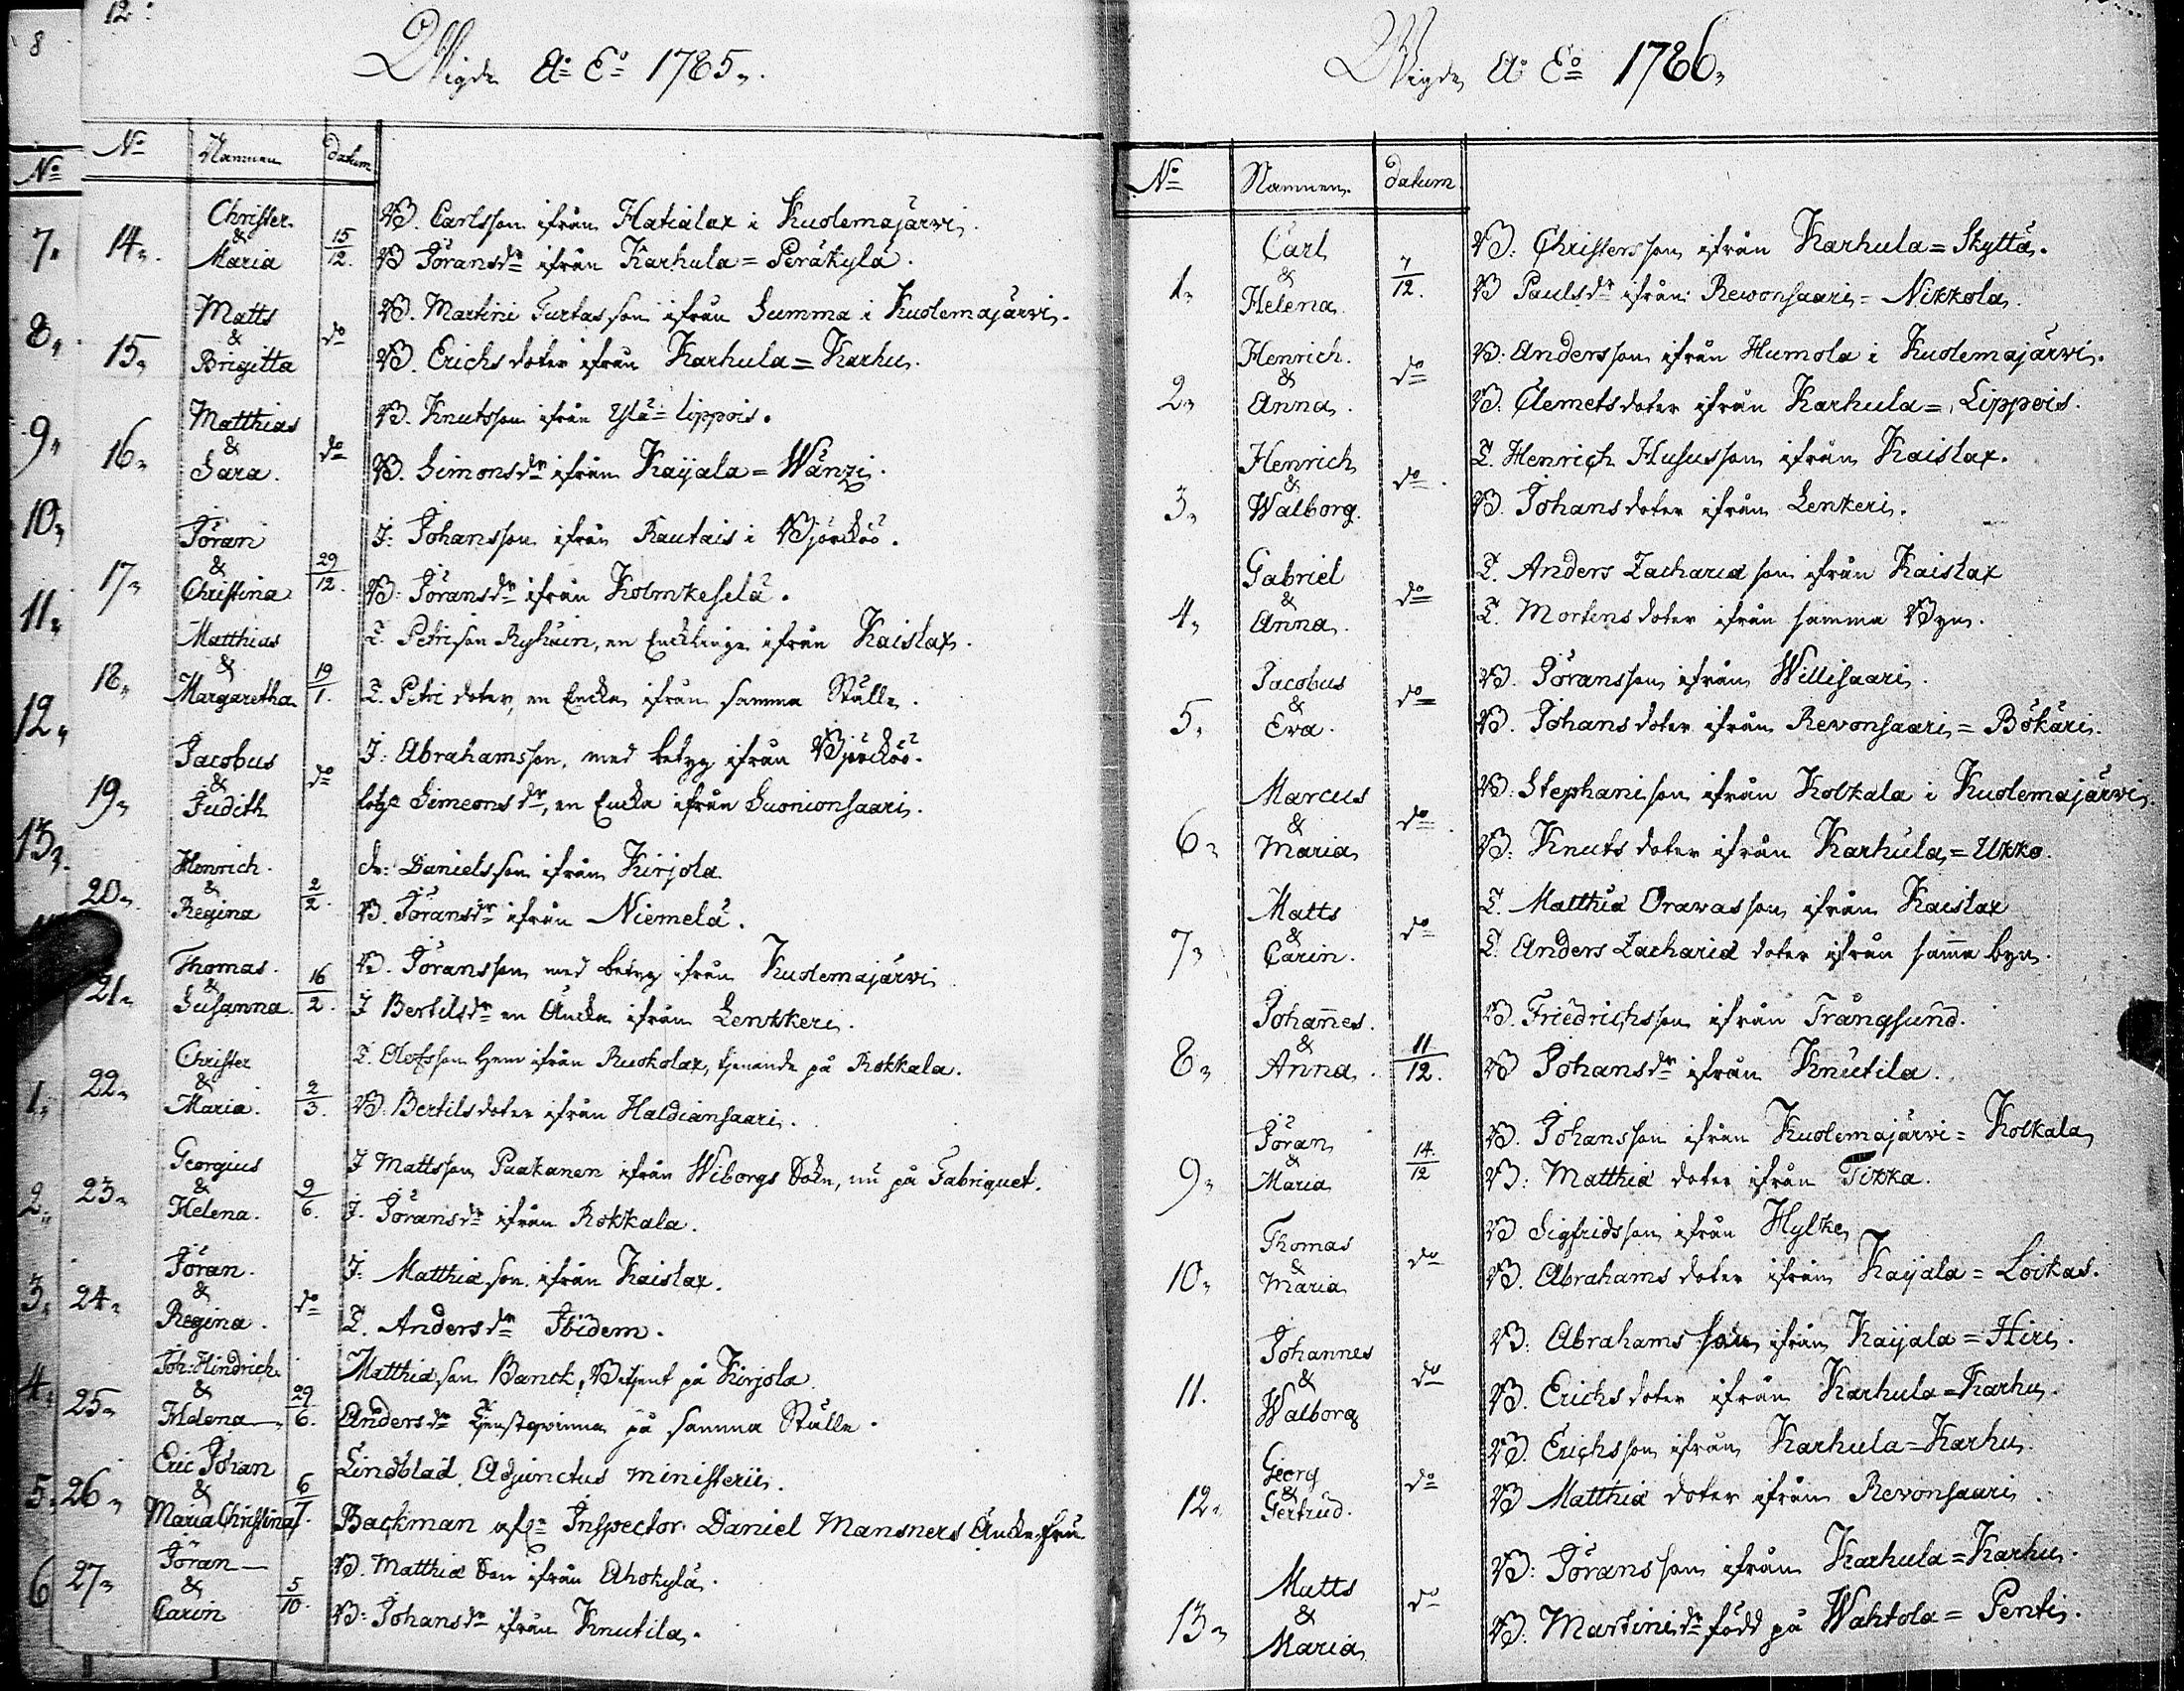 12.
Wigde A:o E:o 1785.
No Namnen datum
14. Christer & Maria 15/12.
B. Carlsson ifrån Hatialax i Kuolemajärvi.
B Jöransdr ifrån Karhula = Peräkylä.
15. Matts & Brigitta do
B. Martini Turtasson ifrån Summa i Kuolemajärvi.
B. Erichs doter ifrån Karhula = Karhu.
16. Matthias & Sara. do
B. Knutsson ifrån Ylä = Lippois.
B. Simonsdr ifrån Kaijala = Wänzi.
17. Jöran & Christina 29/12.
I: Johansson ifrån Rautais i Björcköö.
B: Jöransdr ifrån Kolmikeselä.
18. Matthias & Margaretha 19/1.
T. Petrison Ryhäin, en Enckling ifrån Kaislax.
T. Petri doter, en Encka ifrån samma Ställe.
19. Jacobus & Judith do
I: Abrahamsson, med betyg ifrån Björcköö.
Simeonsdr, en Encka ifrån Suonionsaari.
20. Henrich & Regina 2/2.
dr: Danielsson ifrån Kirjola
B. Jöransdr ifrån Niemelä.
21. Thomas & Susanna. 16/2.
B. Jöransson med betyg ifrån Kuolemajärvi
I Bertilsdr en Äncka ifrån Lenkkeri.
22. Christer & Maria. 2/3.
T. Olofsson hem ifrån Ruokolax, tjenande på Rokkala.
B. Bertilsdoter ifrån Haldiansaari.
23. Georgius & Helena. 9/6.
I Mattsson Paakanen ifrån Wiborgs Sokn, nu på Fabriquet.
I. Jöransdr ifrån Rokkala.
24. Jöran & Regina. do
I: Matthiæ son ifrån Kaislax.
T. Andersdr Ibidem.
25. Joh: Hindrich & Helena 29/6.
Matthiæ son Banck, Betjent på Kirjola
Andersdr tjenstqvinna på samma Ställe.
26. Eric Johan & Maria Christina 6/7.
Lindblad Adjunctus ministerii.
Backman Inspector Daniel Mansners Äncke fru
27. Jöran & Carin 5/10.
B. Matthiæ Son ifrån Ahokylä.
B: Johansdr ifrån Knutila.
8
No
7.
8.
9.
10.
11.
12.
13.
1.
2.
3.
4.
5.
6
Wigde A:o E:o 1786.
No Namnen. datum
1. Carl & Helena 7/12.
B: Christersson ifrån Karhula = Skyttä.
B Paulsdr ifrån Rewonsaari = Nikkola
2. Henrich & Anna. do
B: Andersson ifrån Humola i Kuolemajärvi.
B: Clemetsdoter ifrån Karhula = Lippois.
3. Henrich & Walborg. do
T. Henrich Hususson ifrån Kaislax.
B. Johansdoter ifrån Lenkeri.
4. Gabriel & Anna. do
T. Anders Zachariæ son ifrån Kaislax
T. Mortens doter ifrån samma Byn.
5. Jacobus & Eva. do
B. Jöransson ifrån Willisaari.
B. Johansdoter ifrån Revonsaari = Bökäri.
6. Marcus & Maria do
B. Stephani son ifrån Kolkala i Kuolemajärvi.
B: Knuts doter ifrån Karhula = Ukko.
7. Matts & Carin. do
T. Matthiæ Oravasson ifrån Kaislax
T. Anders Zachariæ doter ifrån samma byn.
8. Johannes & Anna. 11/12.
B. Friedrichsson ifrån Trångsund.
B Johansdr ifrån Knutila.
9. Jöran & Maria 14/12
B. Johansson ifrån Kuolemajärvi = Kolkala
B: Matthiæ doter ifrån Tikka.
10. Thomas & Maria do
B Sigfridsson ifrån Hylke
B. Abrahams doter ifrån Kaijala = Loikas.
11. Johannes & Walborg do
B: Abrahams son ifrån Kaijala = Hiri.
B. Erichs doter ifrån Karhula = Karhu.
12. Georg & Gertrud. do
B. Erichsson ifrån Karhula = Karhu.
B Matthiæ doter ifrån Revonsaari
13. Matts & Maria do
B: Jöransson ifrån Karhula = Karhu.
B: Martini dr född på Wahtola = Penti.